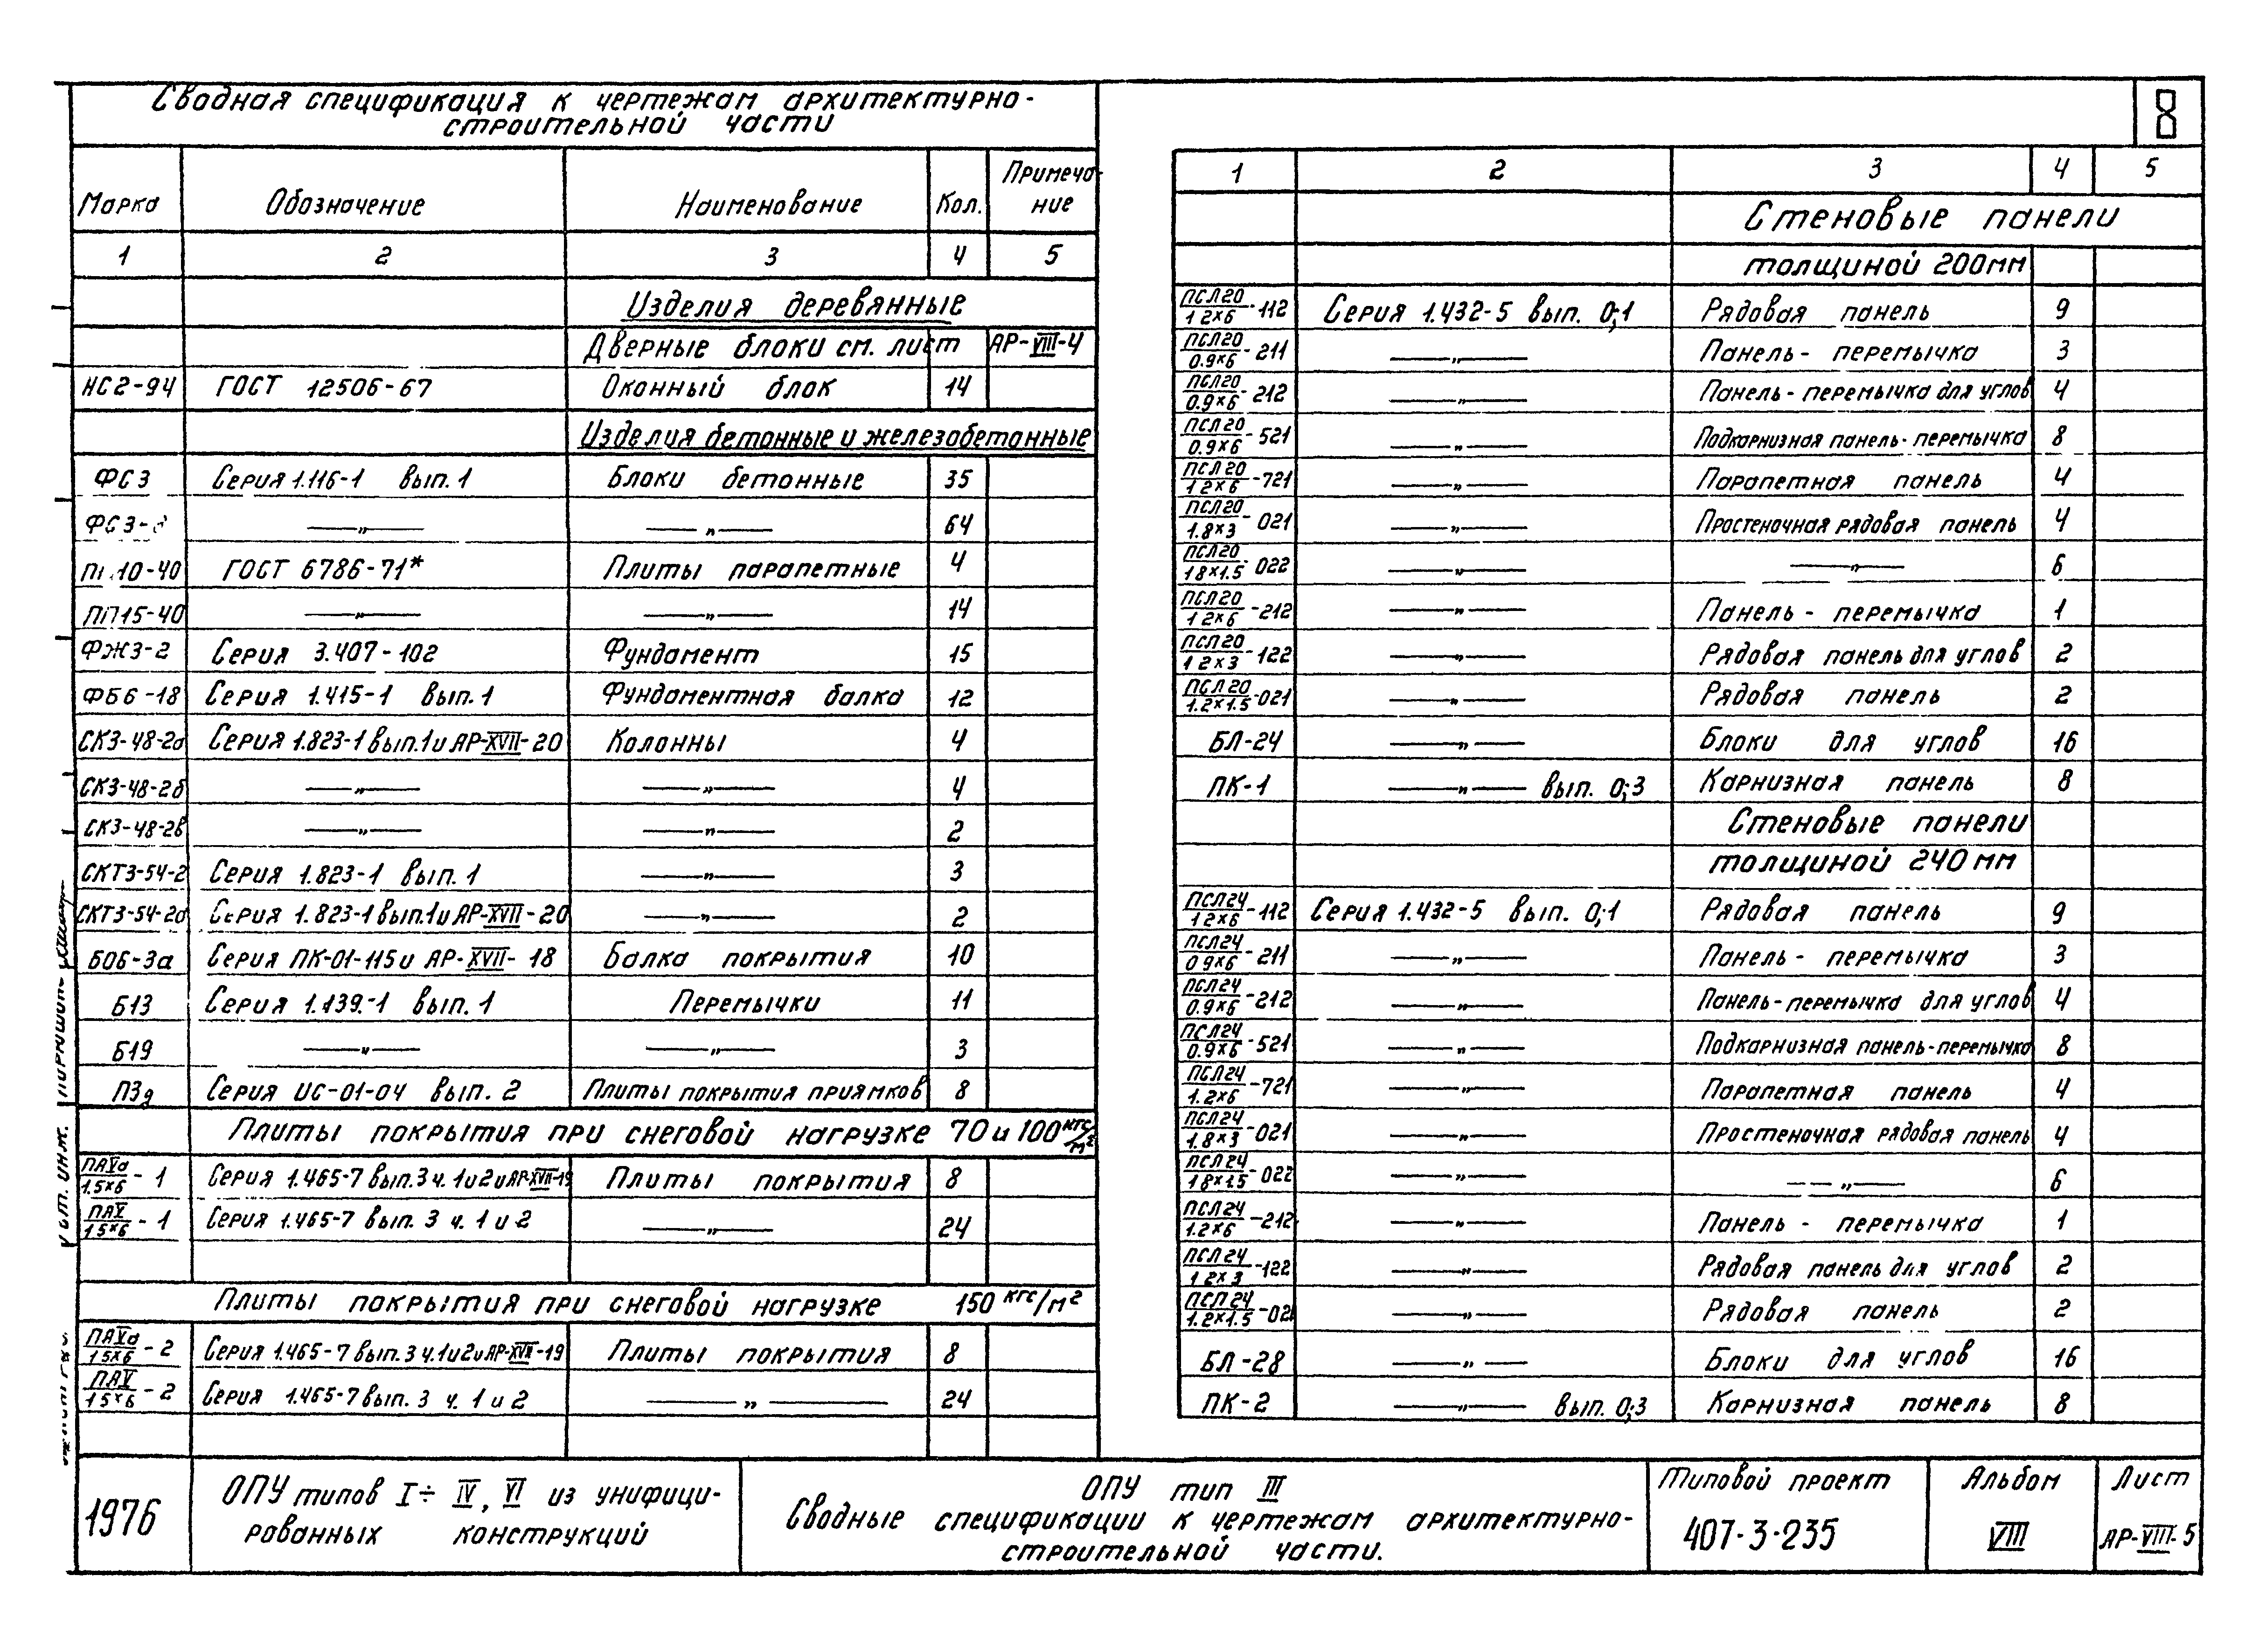 Сводная спецификация к чертежам архитектурно-
строительной части
8
Марка Обозначение Наименование Кол. Примеча-
ние
1 2 3 4 5
Изделия деревянные
Дверные блоки см. лист АР-VIII-4
НС2-94 ГОСТ 12506-67 Оконный блок 14
Изделия бетонные и железобетонные
ФС3 Серия 1.116-1 вып. 1 Блоки бетонные 35
—„— —„— 64
ГОСТ 6786-71* Плиты парапетные 4
ПП15-40 —„— —„— 14
ФЖ3-2 Серия 3.407-102 Фундамент 15
ФБ6-18 Серия 1.415-1 вып. 1 Фундаментная балка 12
СК3-48-2а Серия 1.823-1 вып.1 и АР-XVII-20 Колонны 4
СК3-48-2б —„— —„— 4
СК3-48-2в —„— —„— 2
СКТ3-54-2 Серия 1.823-1 вып. 1 —„— 3
СКТ3-54-2а Серия 1.823-1 вып.1 и АР-XVII-20 —„— 2
Б06-3а Серия ПК-01-115 и АР-XVII-18 Балка покрытия 10
Б13 Серия 1.139-1 вып. 1 Перемычки 11
Б19 —„— —„— 3
П3д Серия ИС-01-04 вып. 2 Плиты покрытия приямков 8
Плиты покрытия при снеговой нагрузке 70 и 100 кгс/м²
ПАVа/1.5×6-1 Серия 1.465-7 вып.3 ч. 1 и 2 и АР-XVII-19 Плиты покрытия 8
ПАV/1.5×6-1 Серия 1.465-7 вып. 3 ч. 1 и 2 —„— 24
Плиты покрытия при снеговой нагрузке 150 кгс/м²
ПАVа/1.5×6-2 Серия 1.465-7 вып.3 ч.1 и 2 и АР-XVII-19 Плиты покрытия 8
ПАV/1.5×6-2 Серия 1.465-7 вып. 3 ч. 1 и 2 —„— 24
1 2 3 4 5
Стеновые панели
толщиной 200мм
ПСЛ20/1.2×6-112 Серия 1.432-5 вып. 0;1 Рядовая панель 9
ПСЛ20/0.9×6-211 —„— Панель-перемычка 3
ПСЛ20/0.9×6-212 —„— Панель-перемычка для углов 4
ПСЛ20/0.9×6-521 —„— Подкарнизная панель-перемычка 8
ПСЛ20/1.2×6-721 —„— Парапетная панель 4
ПСЛ20/1.8×3-021 —„— Простеночная рядовая панель 4
ПСЛ20/1.8×1.5-022 —„— —„— 6
ПСЛ20/1.2×6-212 —„— Панель-перемычка 1
ПСЛ20/1.2×3-122 —„— Рядовая панель для углов 2
ПСЛ20/1.2×1.5-021 —„— Рядовая панель 2
БЛ-24 —„— Блоки для углов 16
ПК-1 —„— вып. 0;3 Карнизная панель 8
Стеновые панели
толщиной 240 мм
ПСЛ24/1.2×6-112 Серия 1.432-5 вып. 0;1 Рядовая панель 9
ПСЛ24/0.9×6-211 —„— Панель-перемычка 3
ПСЛ24/0.9×6-212 —„— Панель-перемычка для углов 4
ПСЛ24/0.9×6-521 —„— Подкарнизная панель-перемычка 8
ПСЛ24/1.2×6-721 —„— Парапетная панель 4
ПСЛ24/1.8×3-021 —„— Простеночная рядовая панель 4
ПСЛ24/1.8×1.5-022 —„— —„— 6
ПСЛ24/1.2×6-212 —„— Панель-перемычка 1
ПСЛ24/1.2×3-122 —„— Рядовая панель для углов 2
ПСЛ24/1.2×1.5-021 —„— Рядовая панель 2
БЛ-28 —„— Блоки для углов 16
ПК-2 —„— вып. 0;3 Карнизная панель 8
1976
ОПУ типов I÷IV, VI из унифици-
рованных конструкций
ОПУ тип III
Сводные спецификации к чертежам архитектурно-
строительной части.
Типовой проект
407-3-235
Альбом
VIII
Лист
АР-VIII-5